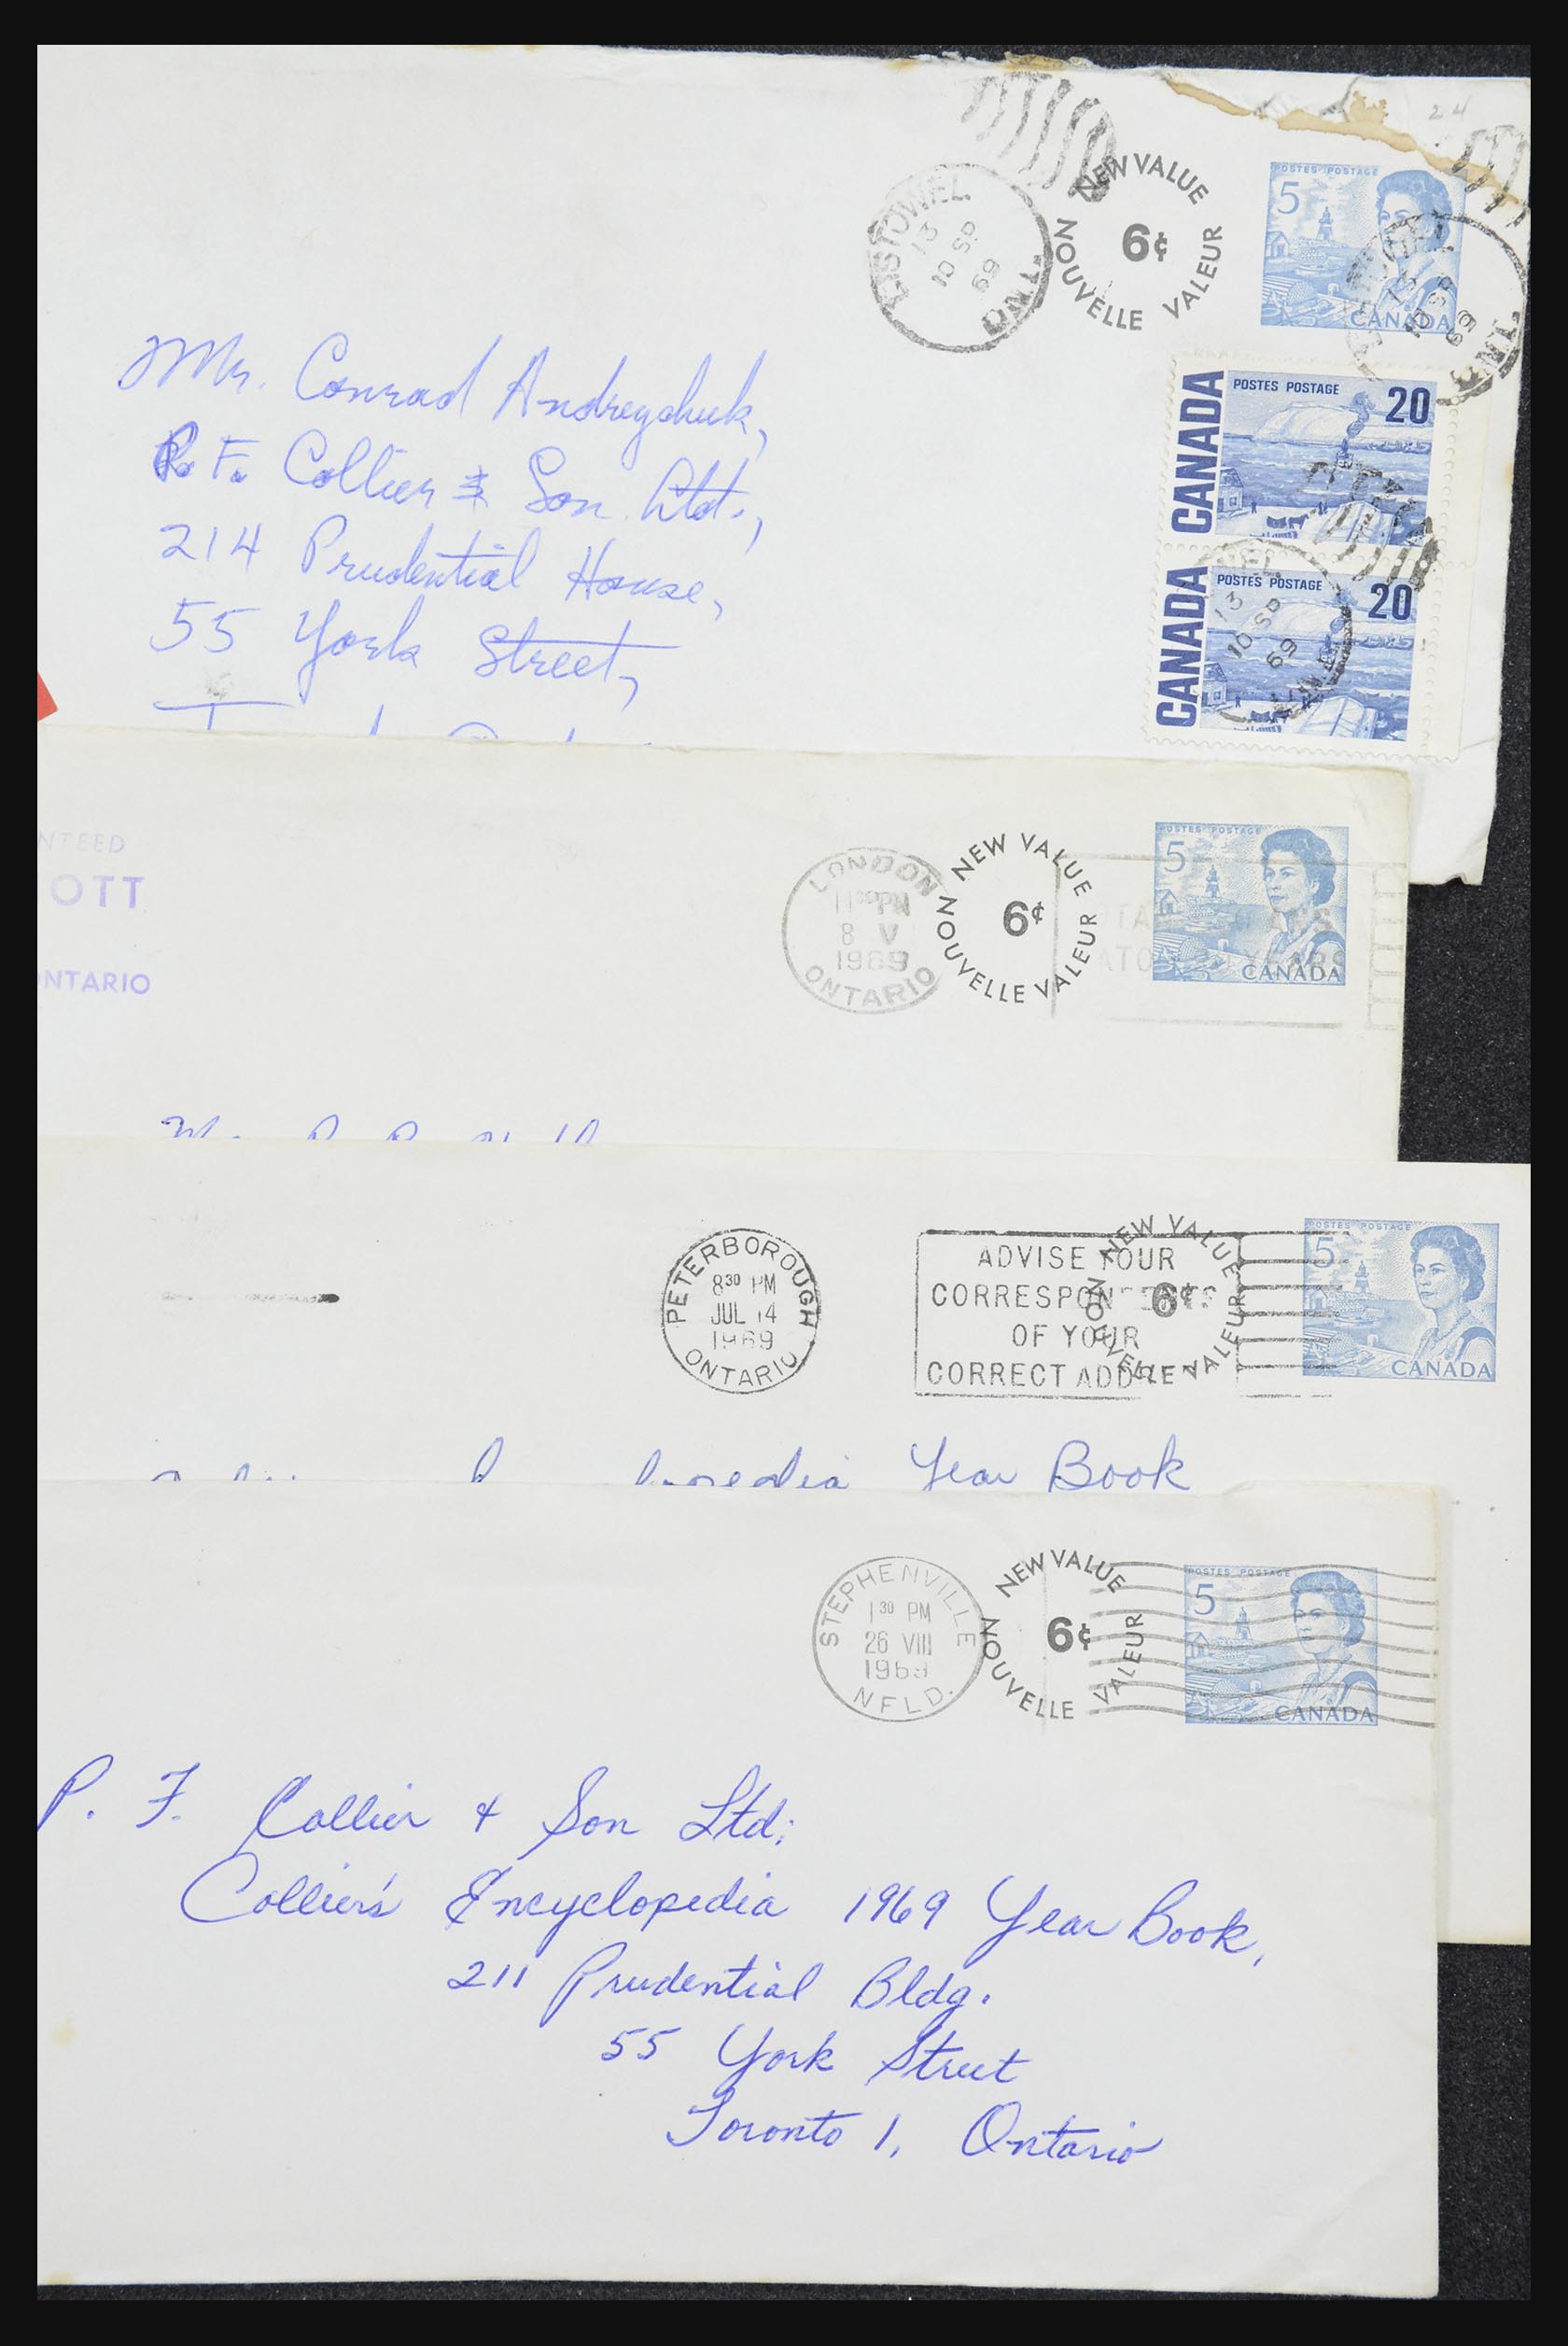 24
NEW VALUE
6¢
NOUVELLE VALEUR
LISTOWEL
13
10 SP
69
ONT.
POSTES POSTAGE
5
CANADA
13
10 SP
69
ONT.
Mr. Conrad Andreychuk,
P. F. Collier & Son Ltd.,
214 Prudential House,
55 York Street,
CANADA
POSTES POSTAGE
20
CANADA
POSTES POSTAGE
20
13
10 SP
69
NTEED
OTT
NTARIO
LONDON
11 30 PM
8 V
1969
ONTARIO
NEW VALUE
6¢
NOUVELLE VALEUR
POSTES POSTAGE
5
CANADA
PETERBOROUGH
8 30 PM
JUL 14
1969
ONTARIO
ADVISE YOUR
CORRESPONDENTS
OF YOUR
CORRECT ADD
NEW VALUE
6¢
NOUVELLE VALEUR
POSTES POSTAGE
5
CANADA
Year Book
STEPHENVILLE
1 30 PM
26 VIII
1969
NFLD.
NEW VALUE
6¢
NOUVELLE VALEUR
POSTES POSTAGE
5
CANADA
P. F. Collier & Son Ltd.
Collier's Encyclopedia 1969 Year Book,
211 Prudential Bldg.
55 York Street
Toronto 1, Ontario